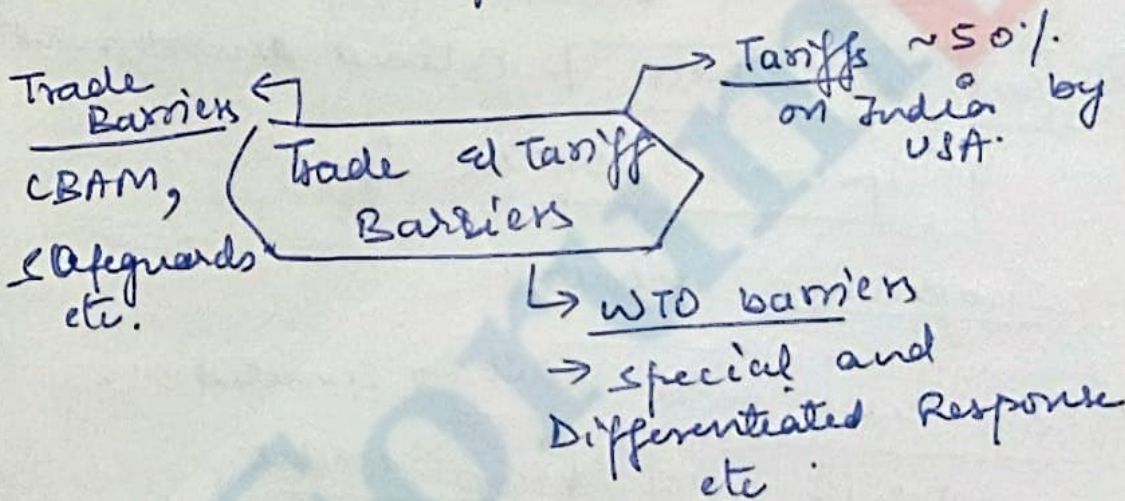 Trade
Barriers
CBAM,
Safeguards
etc.
Trade & Tariff
Barriers
Tariffs ~50%
on India by
USA.
WTO barriers
→ special and
Differentiated Response
etc.